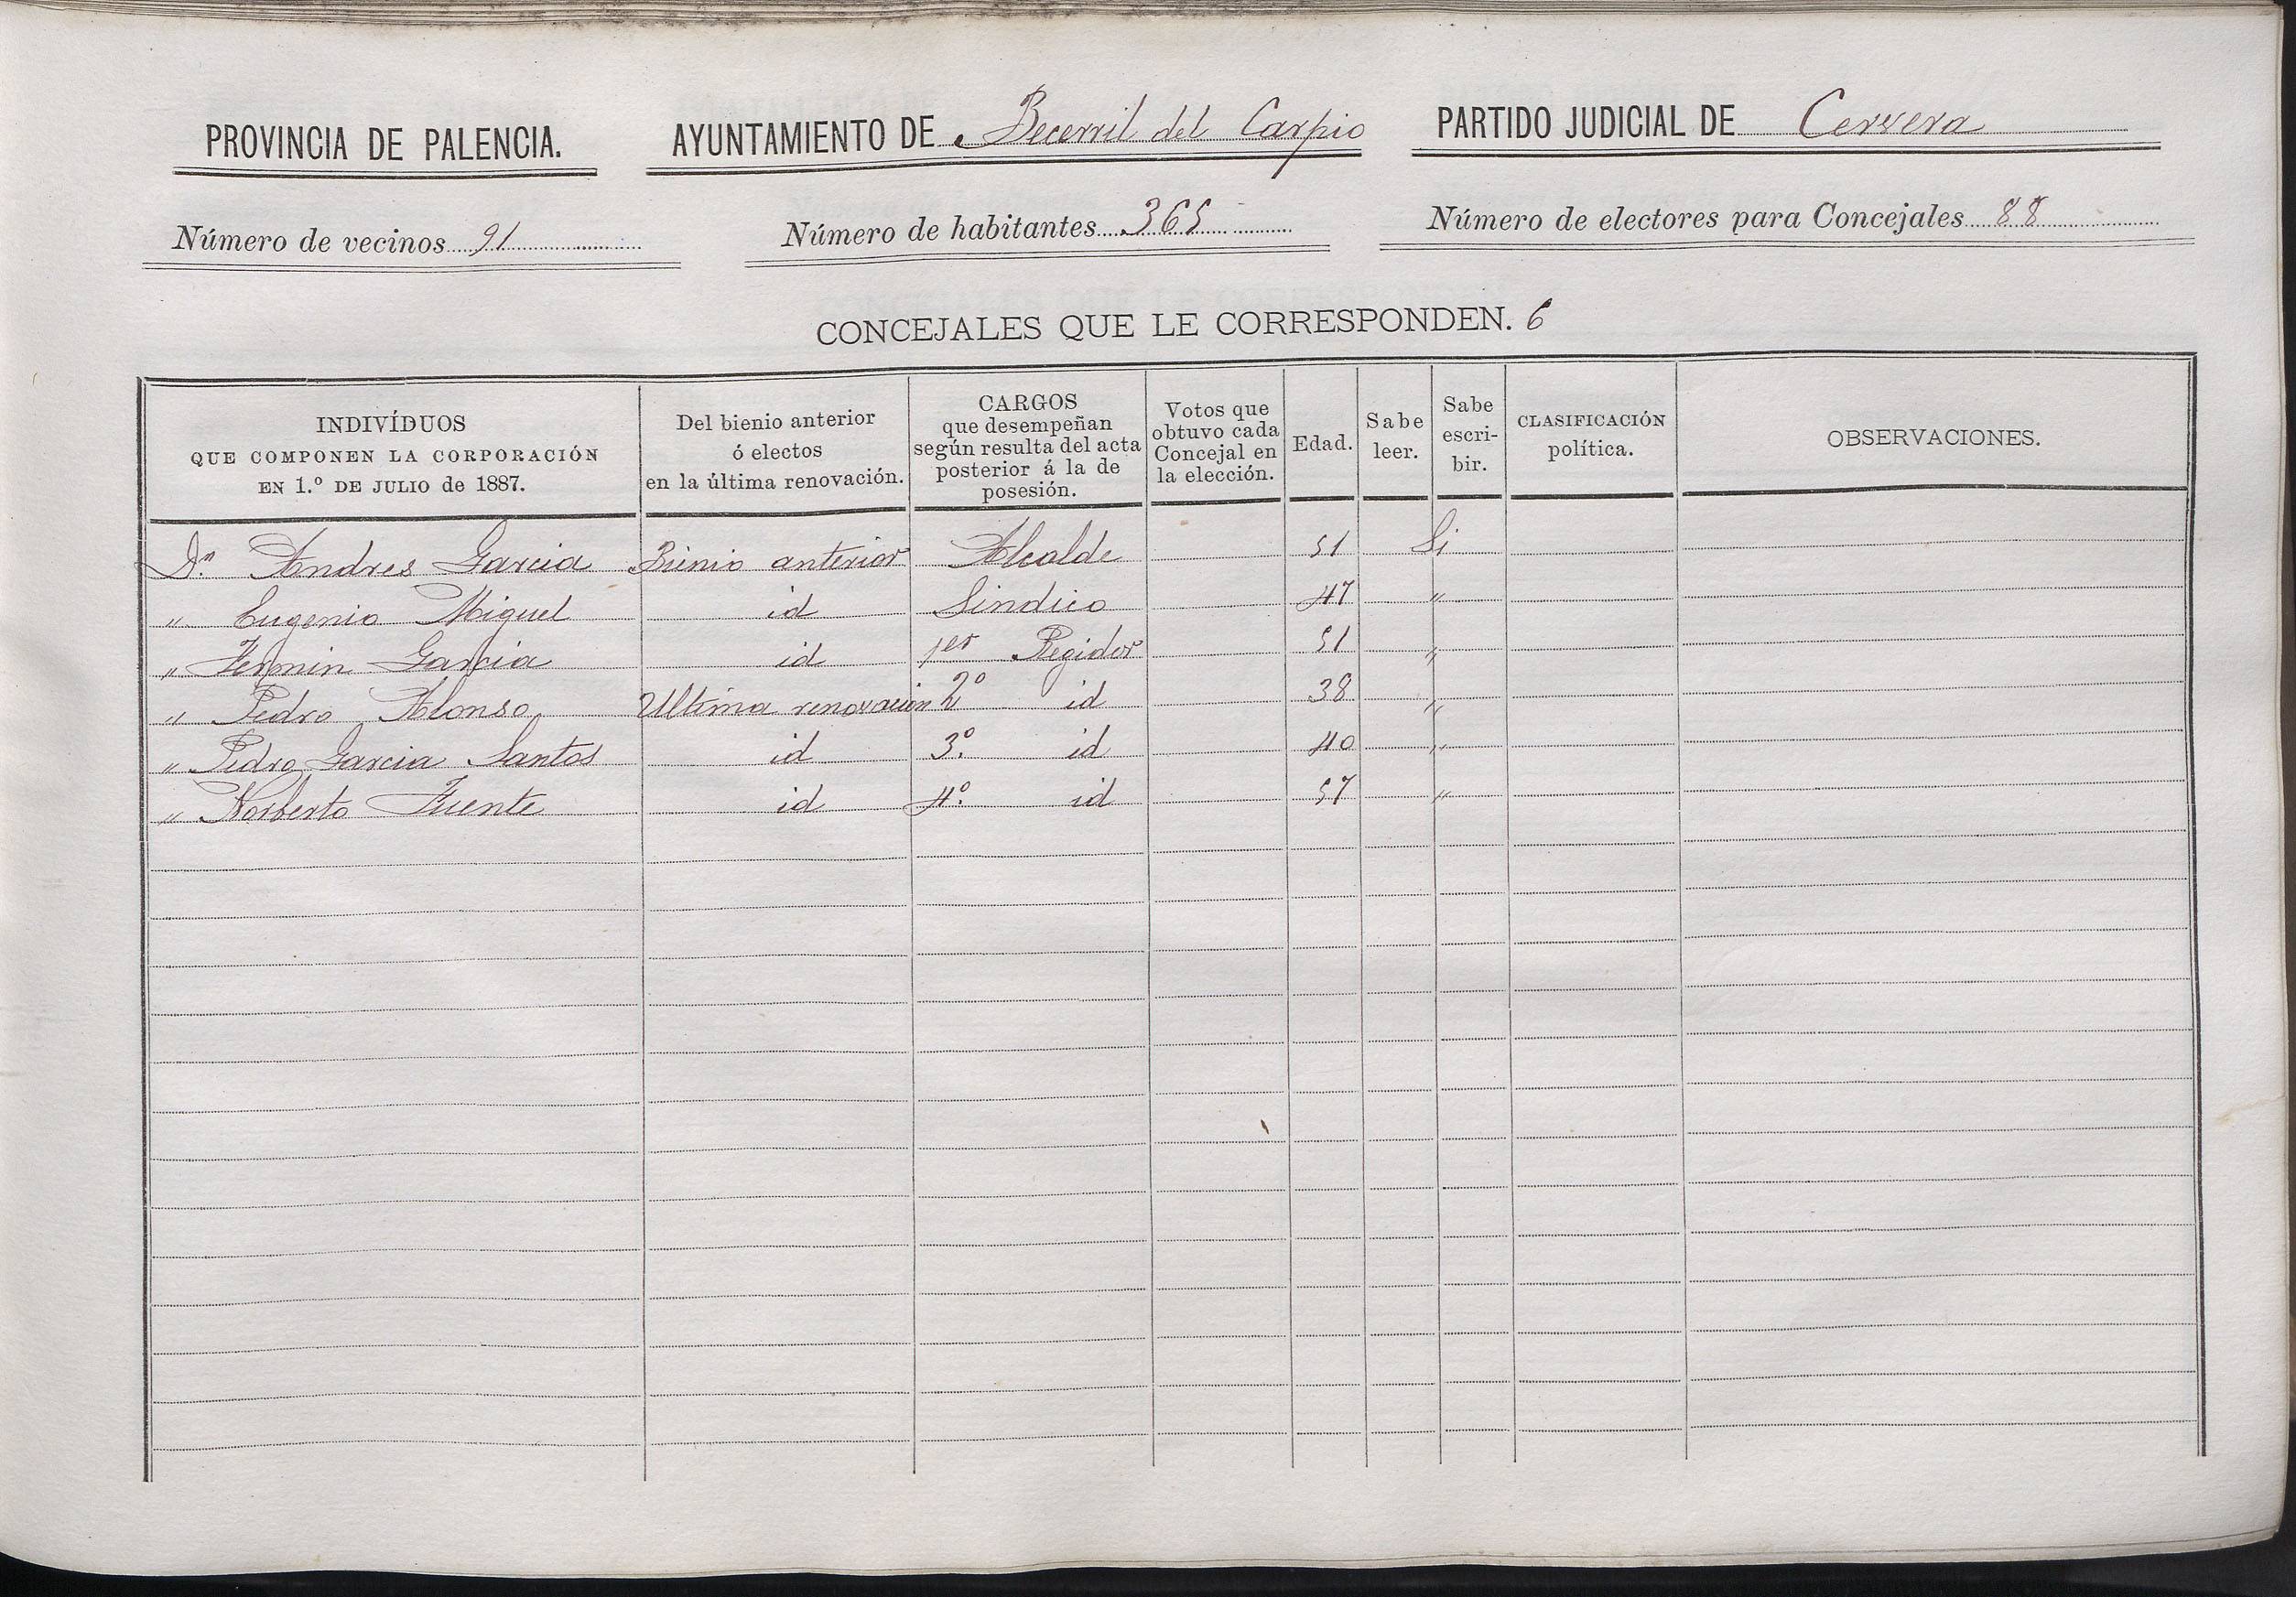 PROVINCIA DE PALENCIA. AYUNTAMIENTO DE Becerril del Carpio PARTIDO JUDICIAL DE Cervera
Número de vecinos 91 Número de habitantes 365 Número de electores para Concejales 88
CONCEJALES QUE LE CORRESPONDEN. 6
INDIVÍDUOS
QUE COMPONEN LA CORPORACIÓN
EN 1.º DE JULIO de 1887.
Del bienio anterior
ó electos
en la última renovación.
CARGOS
que desempeñan
según resulta del acta
posterior á la de
posesión.
Votos que
obtuvo cada
Concejal en
la elección.
Edad.
Sabe
leer.
Sabe
escri-
bir.
CLASIFICACIÓN
política.
OBSERVACIONES.
Dn. Andres Garcia Bienio anterior Alcalde 51 Si
" Eugenio Miguel id Sindico 47 "
" Fermin Garcia id 1er Regidor 51 "
" Pedro Alonso Ultima renovacion 2º id 38 "
" Pedro Garcia Santos id 3º. id 40 "
" Norberto Fuente id 4º. id 57 "